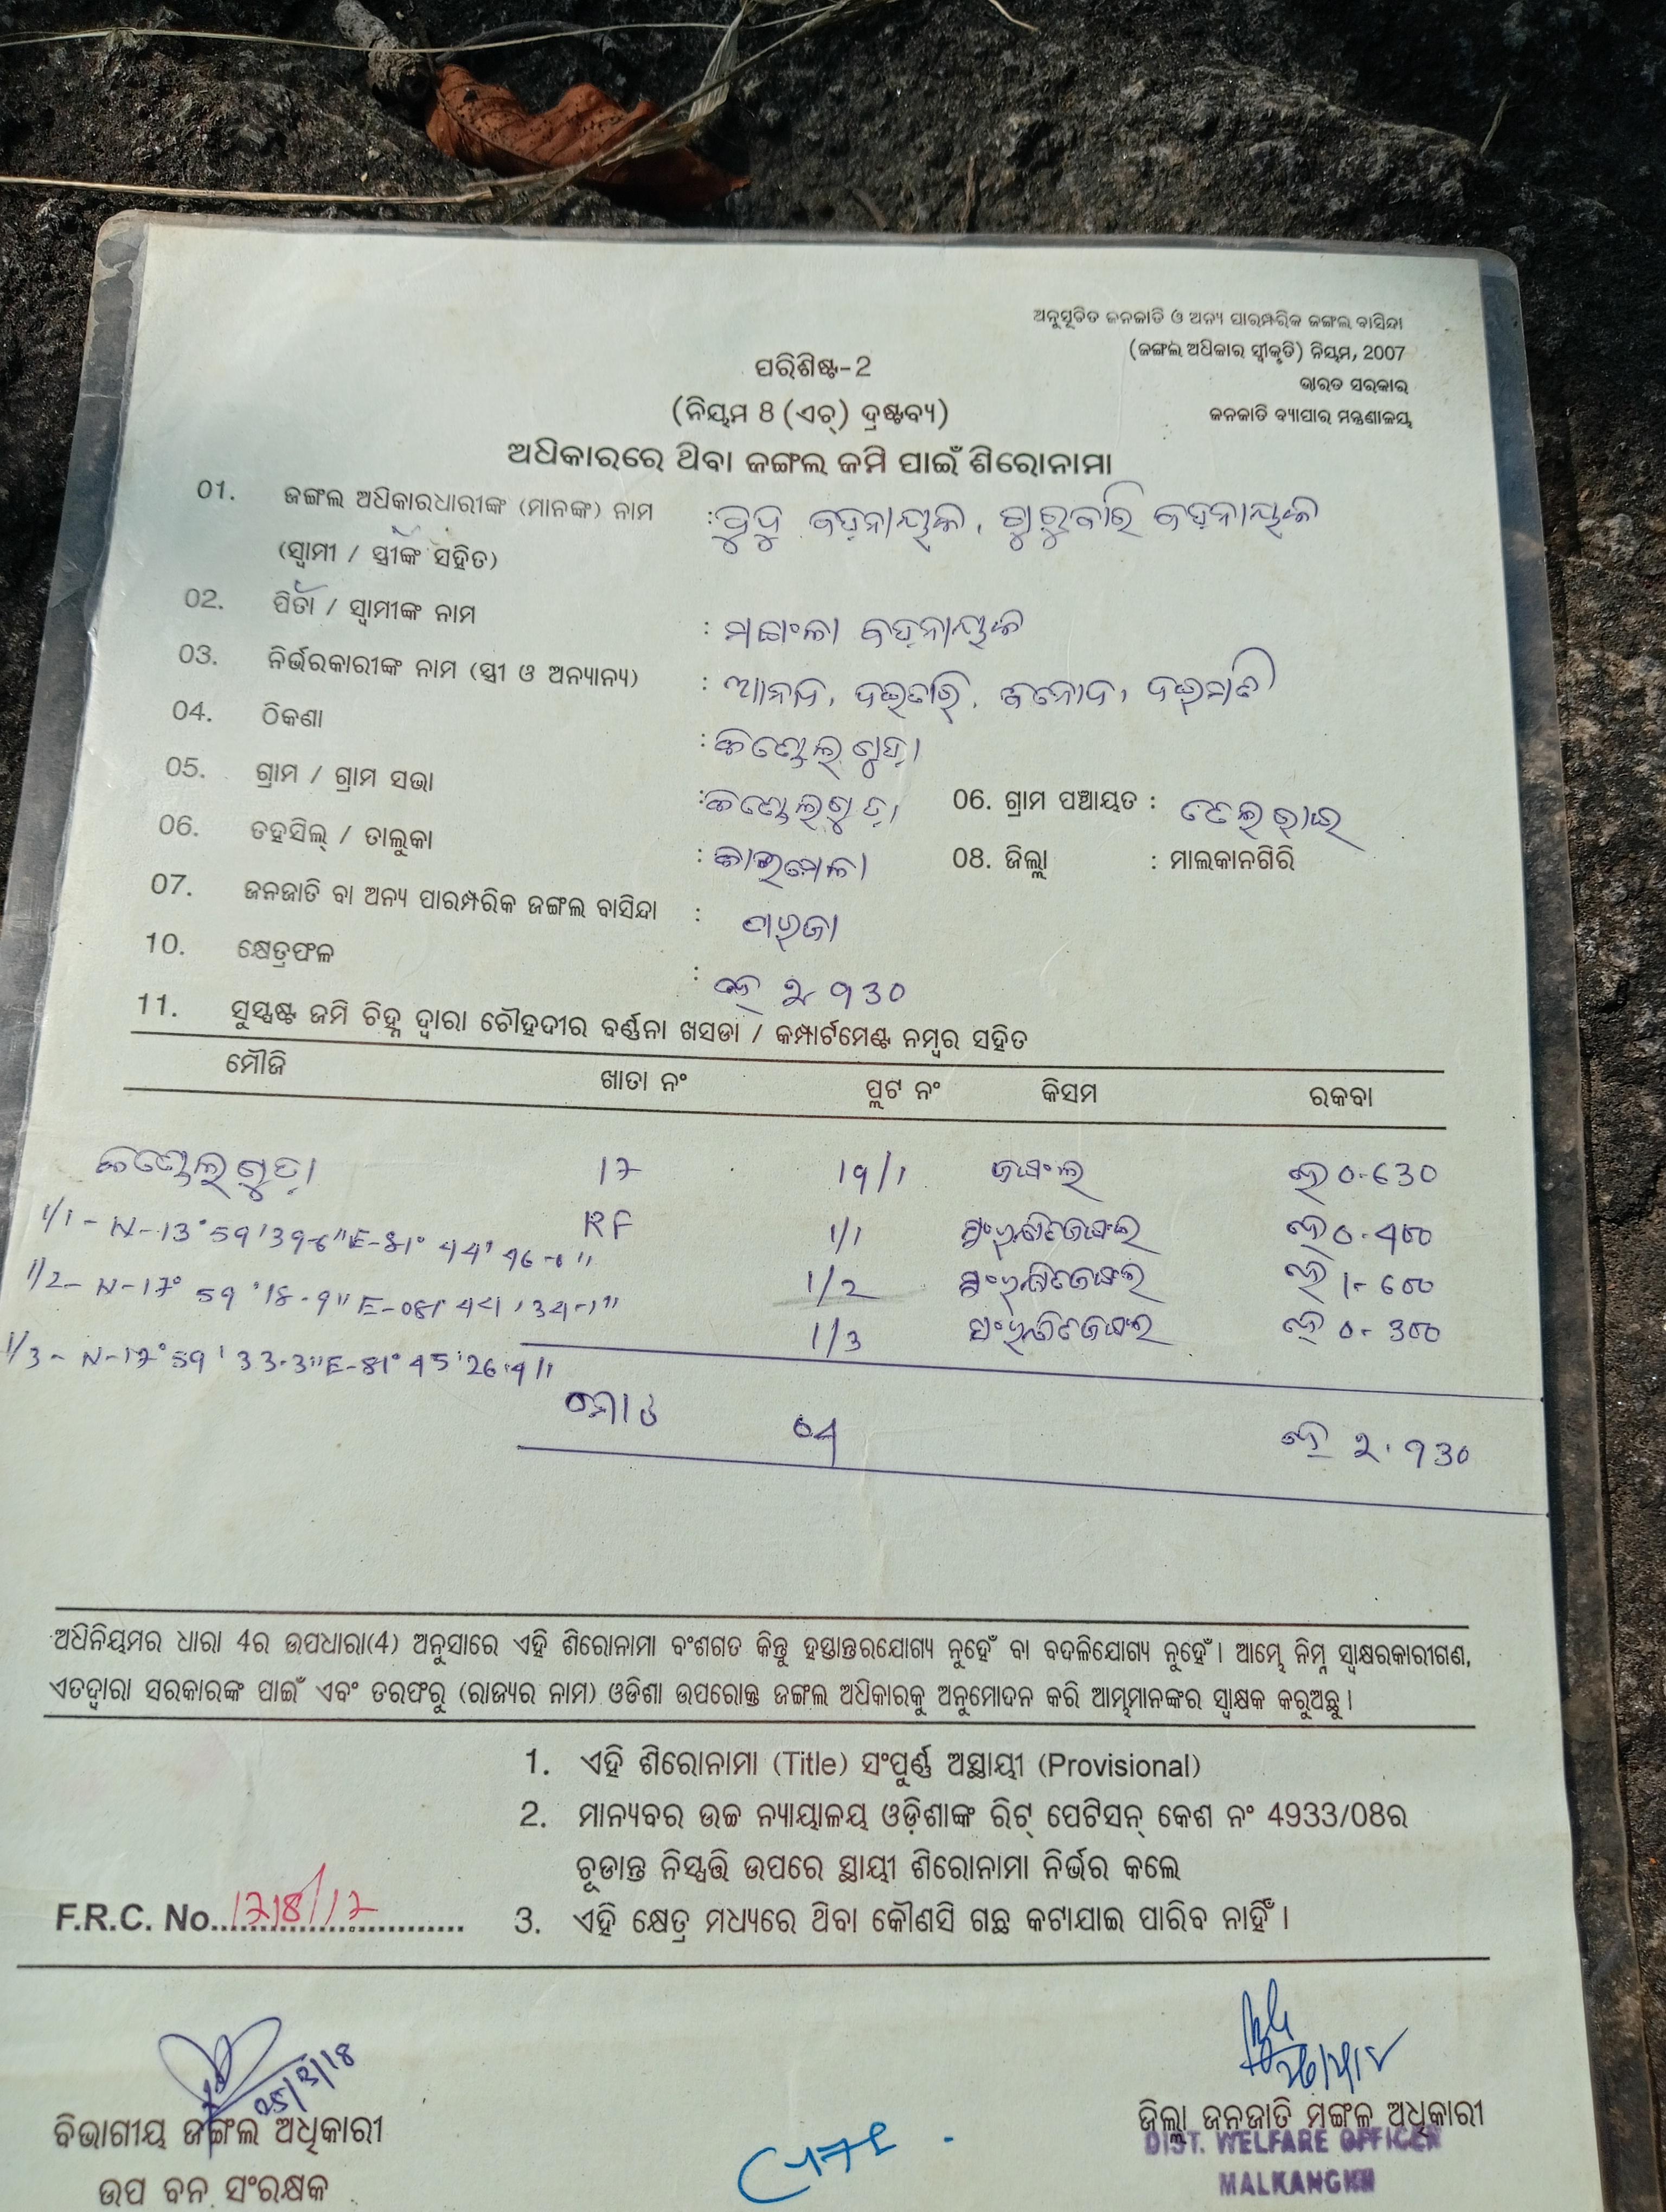 ଅନୁସୂଚିତ ଜନଜାତି ଓ ଅନ୍ୟ ପାରମ୍ପରିକ ଜଙ୍ଗଲ ବାସିନ୍ଦା
(ଜଙ୍ଗଲ ଅଧିକାର ସ୍ୱୀକୃତି) ନିୟମ, 2007
ଭାରତ ସରକାର
ଜନଜାତି ବ୍ୟାପାର ମନ୍ତ୍ରଣାଳୟ
ପରିଶିଷ୍ଟ-2
(ନିୟମ 8 (ଏଚ୍) ଦ୍ରଷ୍ଟବ୍ୟ)
ଅଧିକାରରେ ଥିବା ଜଙ୍ଗଲ ଜମି ପାଇଁ ଶିରୋନାମା
01. ଜଙ୍ଗଲ ଅଧିକାରଧାରୀଙ୍କ (ମାନଙ୍କ) ନାମ : ବଡ଼ନାୟକ, ଗୁରୁବାରି ବଡ଼ନାୟକ
(ସ୍ୱାମୀ / ସ୍ତ୍ରୀଙ୍କ ସହିତ)
02. ପିତା / ସ୍ୱାମୀଙ୍କ ନାମ : ବଡ଼ନାୟକ
03. ନିର୍ଭରକାରୀଙ୍କ ନାମ (ସ୍ତ୍ରୀ ଓ ଅନ୍ୟାନ୍ୟ) :
04. ଠିକଣା :
05. ଗ୍ରାମ / ଗ୍ରାମ ସଭା : 06. ଗ୍ରାମ ପଞ୍ଚାୟତ : ତେଲରାଇ
06. ତହସିଲ୍ / ତାଲୁକା : 08. ଜିଲ୍ଲା : ମାଲକାନଗିରି
07. ଜନଜାତି ବା ଅନ୍ୟ ପାରମ୍ପରିକ ଜଙ୍ଗଲ ବାସିନ୍ଦା :
10. କ୍ଷେତ୍ରଫଳ : ହେ ୨ ୩30
11. ସୁସ୍ପଷ୍ଟ ଜମି ଚିହ୍ନ ଦ୍ୱାରା ଚୌହଦୀର ବର୍ଣ୍ଣନା ଖସଡା / କମ୍ପାର୍ଟମେଣ୍ଟ ନମ୍ବର ସହିତ
ମୌଜି ଖାତା ନଂ ପ୍ଲଟ ନଂ କିସମ ରକବା
17 19/1 ଜଙ୍ଗଲ ହେ 0.630
1/1 - N-13°59'39.6"E-81° 44' 46.0"
RF 1/1 ହେ 0.400
1/2 - N-17° 59'18.9" E-081° 44' 34.1"
1/2 ହେ 1.600
1/3 - N-17°59'33.3"E-81°45'26.4"
1/3 ହେ 0.300
ମୋଟ 04 ହେ ୨.୩30
ଅଧିନିୟମର ଧାରା 4ର ଉପଧାରା(4) ଅନୁସାରେ ଏହି ଶିରୋନାମା ବଂଶଗତ କିନ୍ତୁ ହସ୍ତାନ୍ତରଯୋଗ୍ୟ ନୁହେଁ ବା ବଦଳିଯୋଗ୍ୟ ନୁହେଁ। ଆମ୍ଭେ ନିମ୍ନ ସ୍ୱାକ୍ଷରକାରୀଗଣ,
ଏତଦ୍ୱାରା ସରକାରଙ୍କ ପାଇଁ ଏବଂ ତରଫରୁ (ରାଜ୍ୟର ନାମ) ଓଡିଶା ଉପରୋକ୍ତ ଜଙ୍ଗଲ ଅଧିକାରକୁ ଅନୁମୋଦନ କରି ଆମ୍ଭମାନଙ୍କର ସ୍ୱାକ୍ଷକ କରୁଅଛୁ।
1. ଏହି ଶିରୋନାମା (Title) ସଂପୁର୍ଣ୍ଣ ଅସ୍ଥାୟୀ (Provisional)
2. ମାନ୍ୟବର ଉଚ୍ଚ ନ୍ୟାୟାଳୟ ଓଡ଼ିଶାଙ୍କ ରିଟ୍ ପେଟିସନ୍ କେଶ ନଂ 4933/08ର
ଚୂଡାନ୍ତ ନିସ୍ପତ୍ତି ଉପରେ ସ୍ଥାୟୀ ଶିରୋନାମା ନିର୍ଭର କଲେ
3. ଏହି କ୍ଷେତ୍ର ମଧ୍ୟରେ ଥିବା କୌଣସି ଗଛ କଟାଯାଇ ପାରିବ ନାହିଁ।
F.R.C. No. 1718/17
25/3/18
ବିଭାଗୀୟ ଜଙ୍ଗଲ ଅଧିକାରୀ
ଉପ ବନ ସଂରକ୍ଷକ
ଜିଲ୍ଲା ଜନଜାତି ମଙ୍ଗଳ ଅଧିକାରୀ
DIST. WELFARE OFFICER
MALKANGIRI